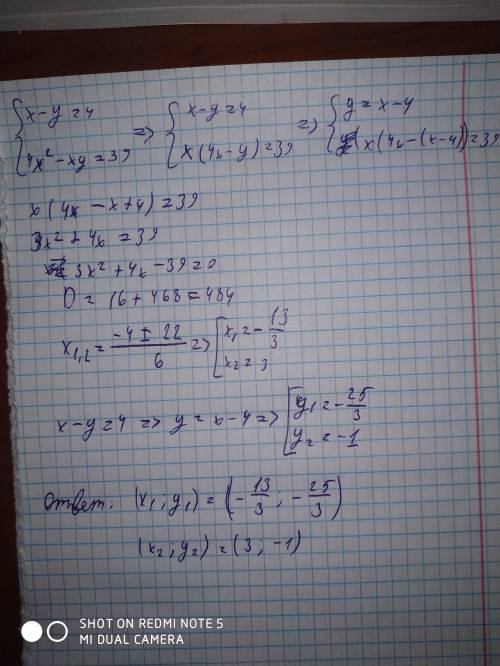 { x-y=4 => { x-y=4 => { y=x-4
{ 4x²-xy=39 { x(4x-y)=39 { x(4x-(x-4))=39
x(4x-x+4)=39
3x²+4x=39
3x²+4x-39=0
D=16+468=484
x₁,₂=(-4±22)/6 => [ x₁=-13/3
x₂=3
x-y=4 => y=x-4 => [ y₁=-25/3
y₂=-1
Ответ: (x₁,y₁)=(-13/3; -25/3)
(x₂;y₂)=(3;-1)
SHOT ON REDMI NOTE 5
MI DUAL CAMERA